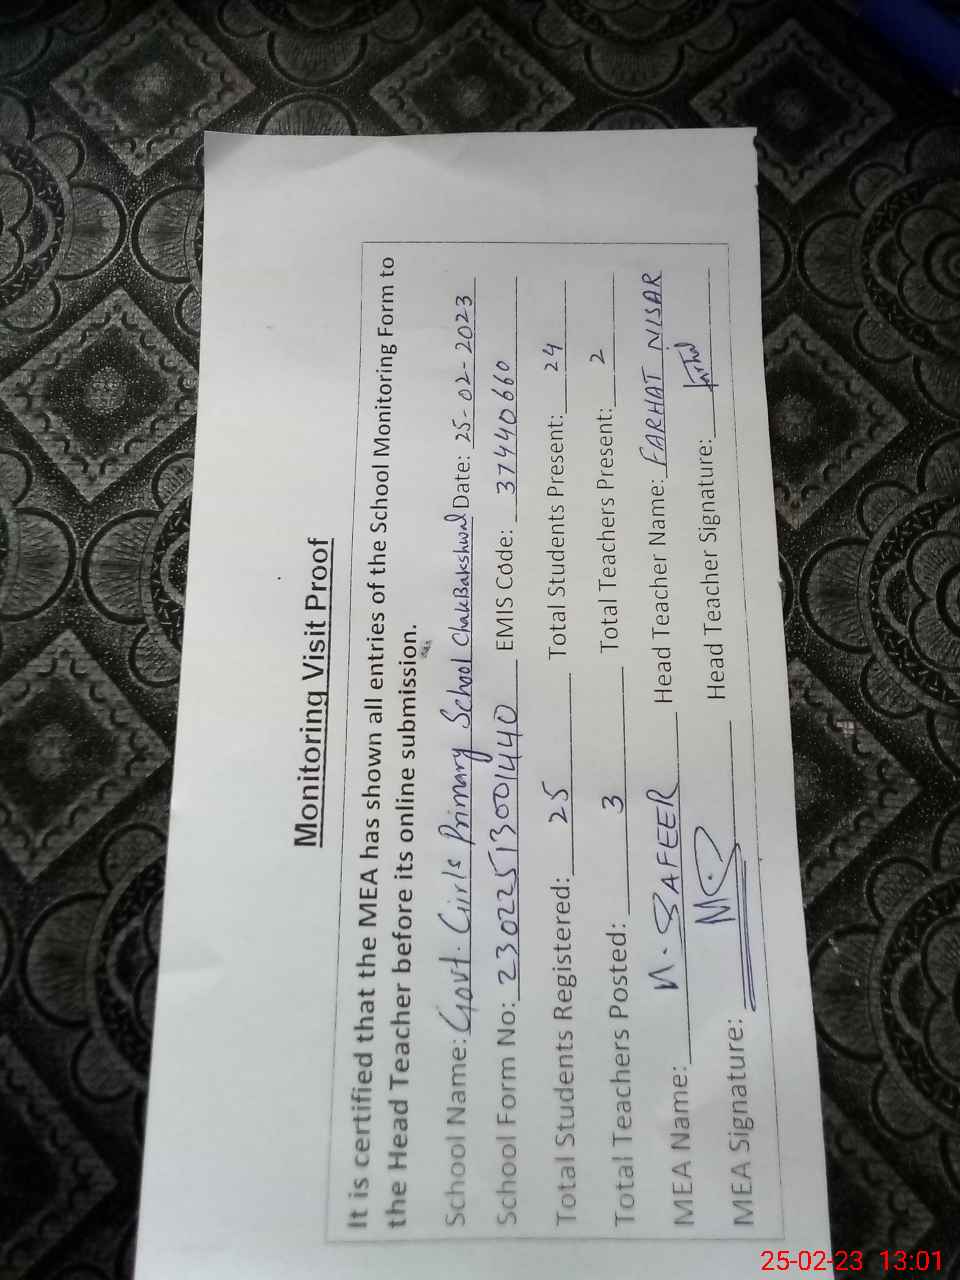 Monitoring Visit Proof
It is certified that the MEA has shown all entries of the School Monitoring Form to
the Head Teacher before its online submission.
School Name: Govt. Girls Primary School ChakBakshwal Date: 25-02-2023
School Form No: 23022513001440 EMIS Code: 37440660
Total Students Registered: 25 Total Students Present: 24
Total Teachers Posted: 3 Total Teachers Present: 2
MEA Name: N. SAFEER Head Teacher Name: FARHAT NISAR
MEA Signature: Head Teacher Signature:
25-02-23 13:01